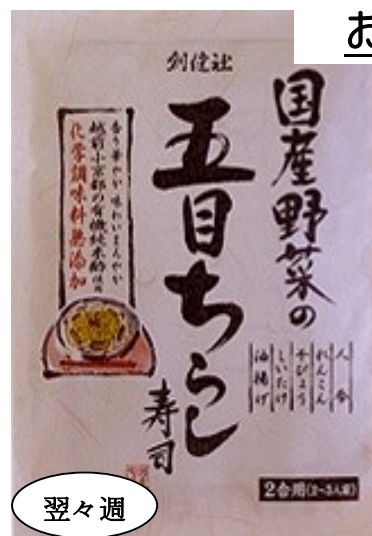 お
創健社
国産野菜の
五目ちらし
寿司
香り華やか 味わいまろやか
越前小京都の有機純米酢使用
化学調味料無添加
人参
れんこん
かんぴょう
しいたけ
油揚げ
2合用(2~3人前)
翌々週